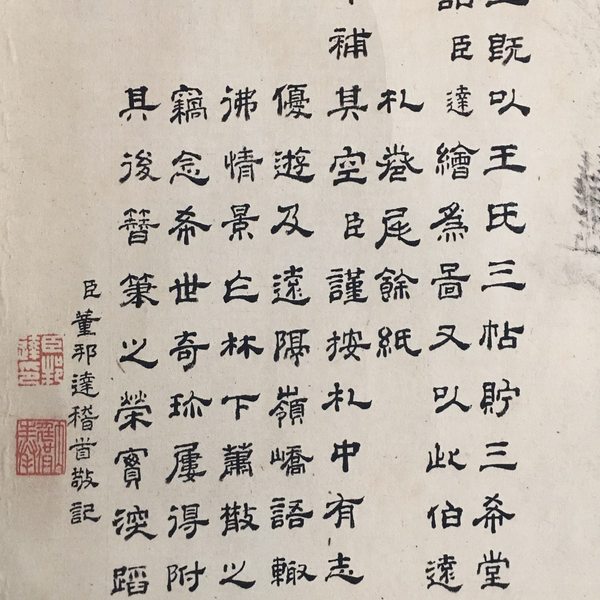 既以王氏三帖貯三希堂
臣達繪為圖又以此伯遠
札卷尾餘紙
補其空臣謹按札中有志
優遊及遠隔嶺嶠語輙
彿情景林下蕭散之
竊念希世奇珍屢得附
其後簪筆之榮實深蹈
臣董邦達稽首敬記